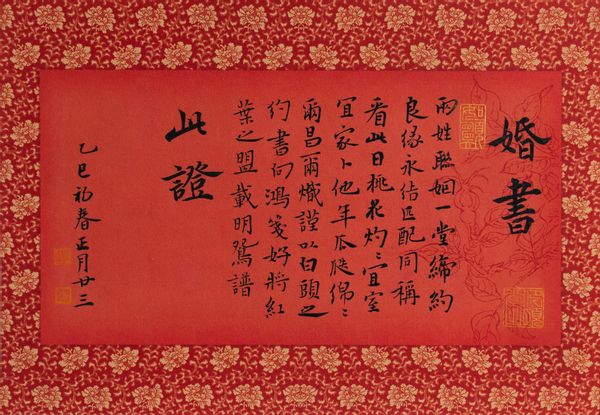 婚書
兩姓聯姻一堂締約
良緣永结匹配同稱
看此日桃花灼灼宜室
宜家卜他年瓜瓞绵绵
爾昌爾熾謹以白頭之
約書向鴻箋好將紅
葉之盟載明鴛譜
此證
乙巳初春正月廿三